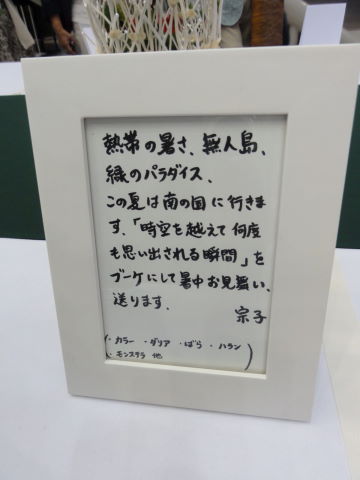 熱帯の暑さ、無人島、
緑のパラダイス、
この夏は南の国に行きま
す、「時空を越えて何度
も思い出される瞬間」を
ブーケにして暑中お見舞い、
送ります。
宗子
(・カラー ・ダリア ・ばら ・ハラン
・モンステラ 他)